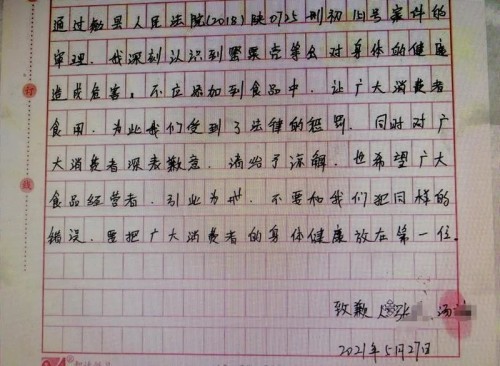 通过勉县人民法院(2018)陕0725刑初 号案件的
审理.我深刻认识到罂粟壳等会对身体的健康
造成危害,不应添加到食品中,让广大消费者
食用.为此我们受到了法律的惩罚.同时对广
大消费者深表歉意.请给予谅解.也希望广大
食品经营者.引此为戒.不要和我们犯同样的
错误.要把广大消费者的身体健康放在第一位.
致歉人
2021年5月27日
订
线